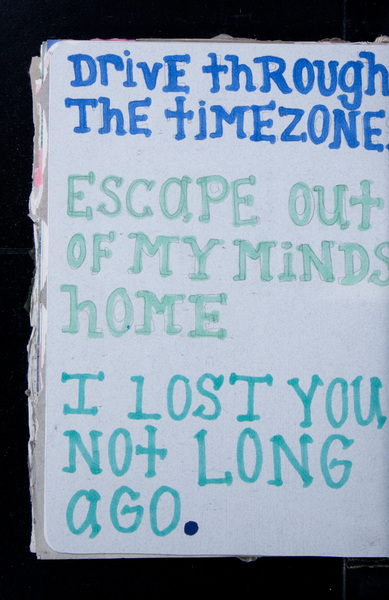 DRivE thROUGh
ThE tiMEZONE.
ESCAPE OUt
OF MY MiNDS
hOME
I LOST YOU
NOt LONG
AGO.